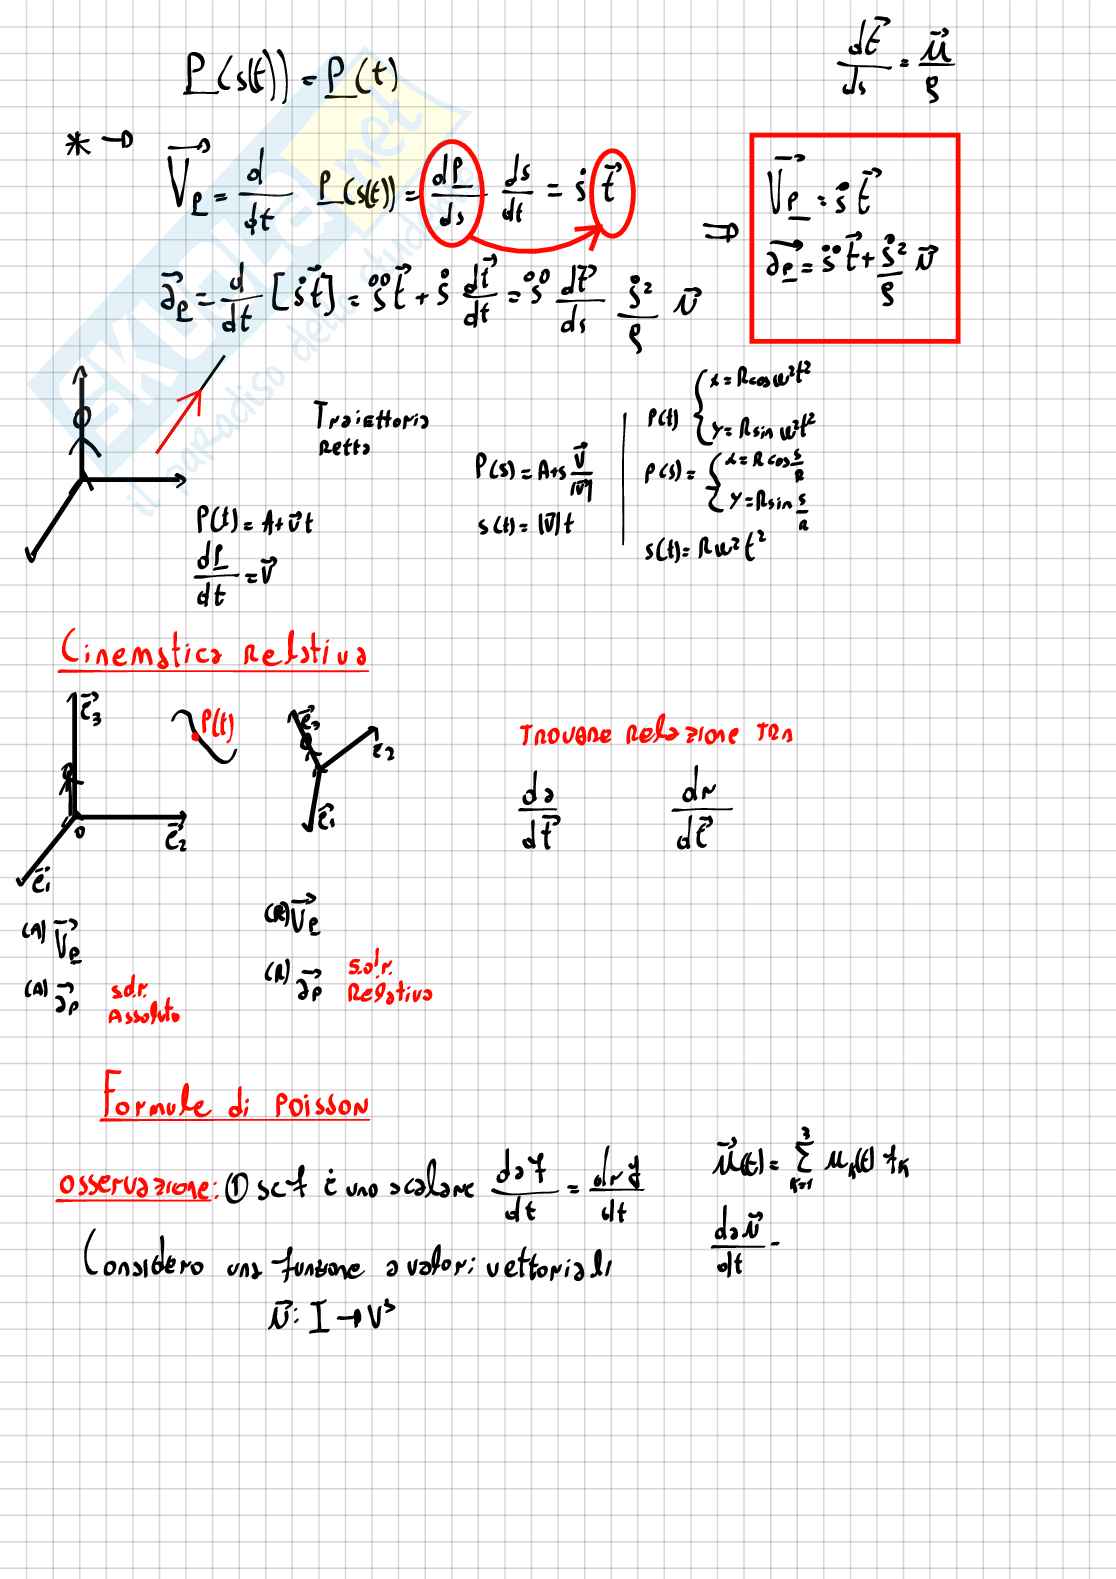 P(s(t)) = P(t)
dt⃗/ds = n⃗/ρ
* → V⃗_P = d/dt P(s(t)) = dP/ds ds/dt = ṡ t⃗
⇒ V⃗_P = ṡ t⃗
a⃗_P = s̈ t⃗ + ṡ²/ρ n⃗
a⃗_P = d/dt [ṡ t⃗] = s̈ t⃗ + ṡ dt⃗/dt = s̈ dt⃗/ds ṡ²/ρ n⃗
Traiettoria
retta
P(t) = A + v⃗ t
dP/dt = v⃗
P(s) = A + s v⃗/|v⃗|
s(t) = |v⃗| t
P(t) { x = R cos w²t²
y = R sin w²t²
P(s) = { x = R cos s/R
y = R sin s/R
s(t) = R w² t²
Cinematica Relativa
e⃗3
P(t)
e⃗3
e⃗2
e⃗1
O
e⃗2
e⃗1
Trovare relazione tra
da/dt⃗
dr/dt⃗
(A) V⃗_P
(A) a⃗_P
s.d.r.
Assoluto
(R) V⃗_P
(R) a⃗_P
s.d.r.
Relativo
Formule di Poisson
Osservazione: ① se f è uno scalare da f/dt = dr f/dt
u⃗(t) = Σ³ₖ₌₁ uₖ(t) fₖ
da u⃗/dt =
Considero una funzione a valori vettoriali
u⃗: I → V³
SKUOLA.net
il paradiso dello studente